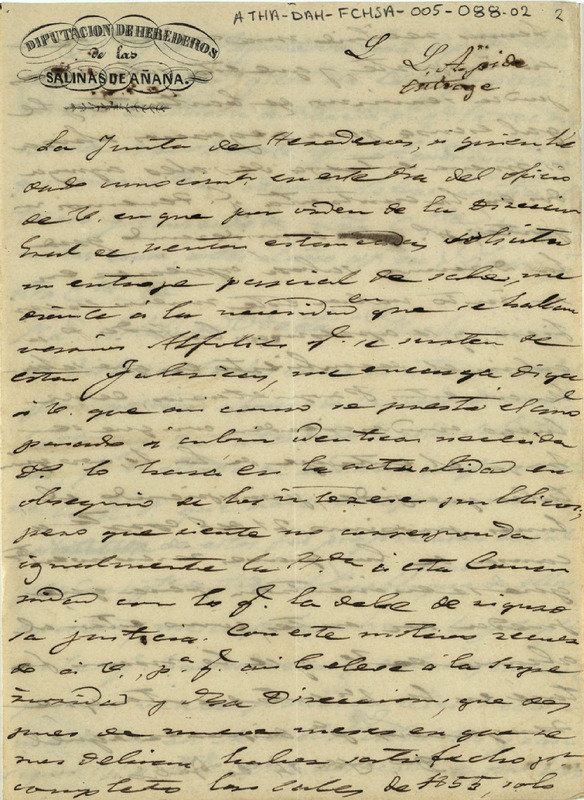 ATHA-DAH-FCHSA-005-088-02 2
DIPUTACION DE HEREDEROS
de las
SALINAS DE AÑANA.
entraje
La Junta de Herederos, a quien he
dado en este dia del oficio
de V. en que por orden de la Direccion
Gral de rentas estancadas solicita
un entraje parcial de sales, me
diante á la necesidad en que se hallan
varios Alfolies q. se surten de
estas fabricas, me encarga diga
á V. que asi como se prestó el año
pasado á cubrir identicas necesida
des lo hará en la actualidad en
obsequio de los intereses publicos,
pero que siente no corresponda
igualmente la Hda á esta Comu
nidad con lo q. la debe de riguro
sa justicia. Con este motivo recuer
do á V., pa. q. asi lo eleve á la Supe
rioridad y Direccion, que des
pues de nueve meses en que se
nos debieran haber satisfecho por
completo las sales de 1855, solo